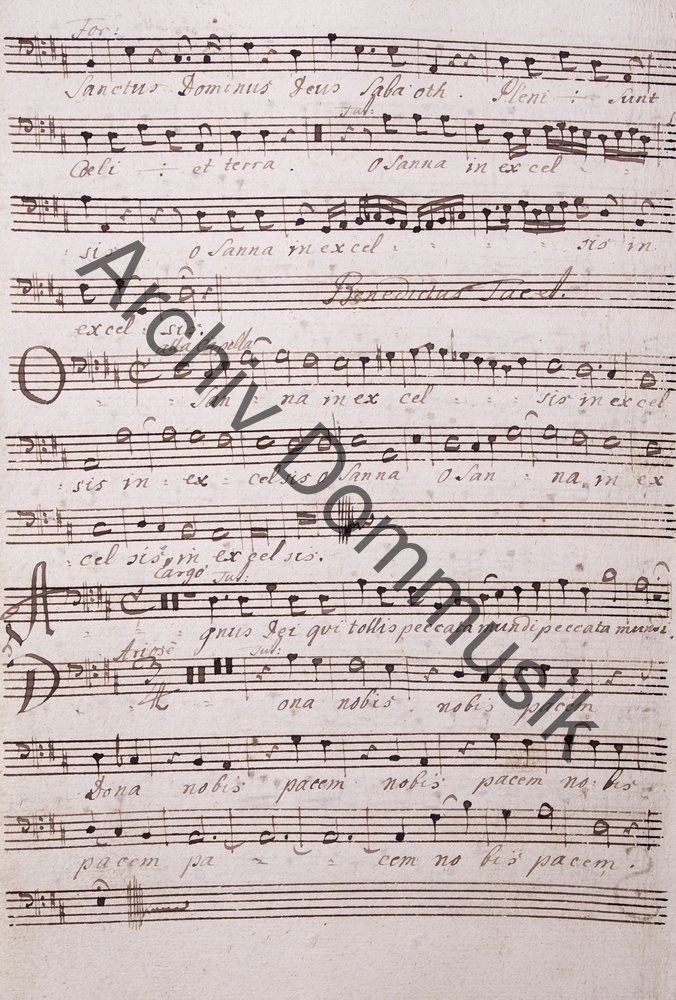 For:
Sanctus Dominus Deus Sabaoth. Pleni :: Sunt
Coeli :: et terra. Osanna in excel -
sis O Sanna in excel - - - - sis in
excel - sis. Benedictus Tacet.
alla Capella
O San - na in ex cel - - - sis in excel
sis in - ex - celsis O Sanna O San - na in ex
cel sis in excelsis.
Largo
Agnus Dei qui tollis peccata mundi peccata mundi.
3/4
Dona nobis nobis pacem
Dona nobis pacem nobis pacem no - bis
pacem pa - - - cem no bis pacem.
Archiv Dommusik